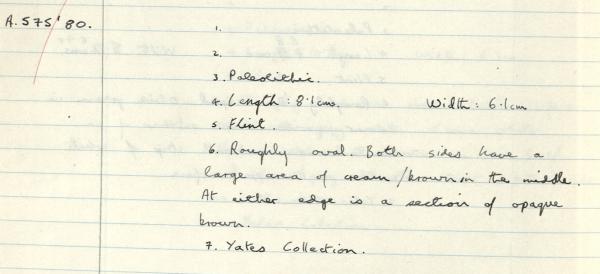 A.575'80.
1.
2.
3. Paleolithic.
4. Length: 8.1cms. Width: 6.1cm
5. Flint.
6. Roughly oval. Both sides have a
large area of cream/brown in the middle.
At either edge is a section of opaque
brown.
7. Yates Collection.